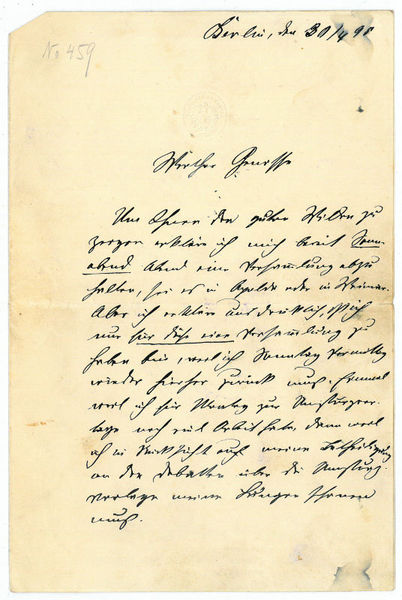 No 459
Berlin, den 30/4 98
Werther Genosse
Um Ihnen den guten Willen zu
zeigen erkläre ich mich bereit Sonn-
abend Abend eine Versammlung abzu
halten, sei es in Apolda oder in Weimar.
Aber ich erkläre ausdrücklich, daß ich
nur für diese eine Versammlung zu
haben bin, weil ich Sonntag Vormittag
wieder hierher zurück muß. Einmal
weil ich für Montag zur Umsturzvor-
lage noch viel Arbeit habe, dann weil
ich in Rücksicht auf meine Betheiligung
an den Debatten über die Umsturz-
vorlage meine Lungen schonen
muß.